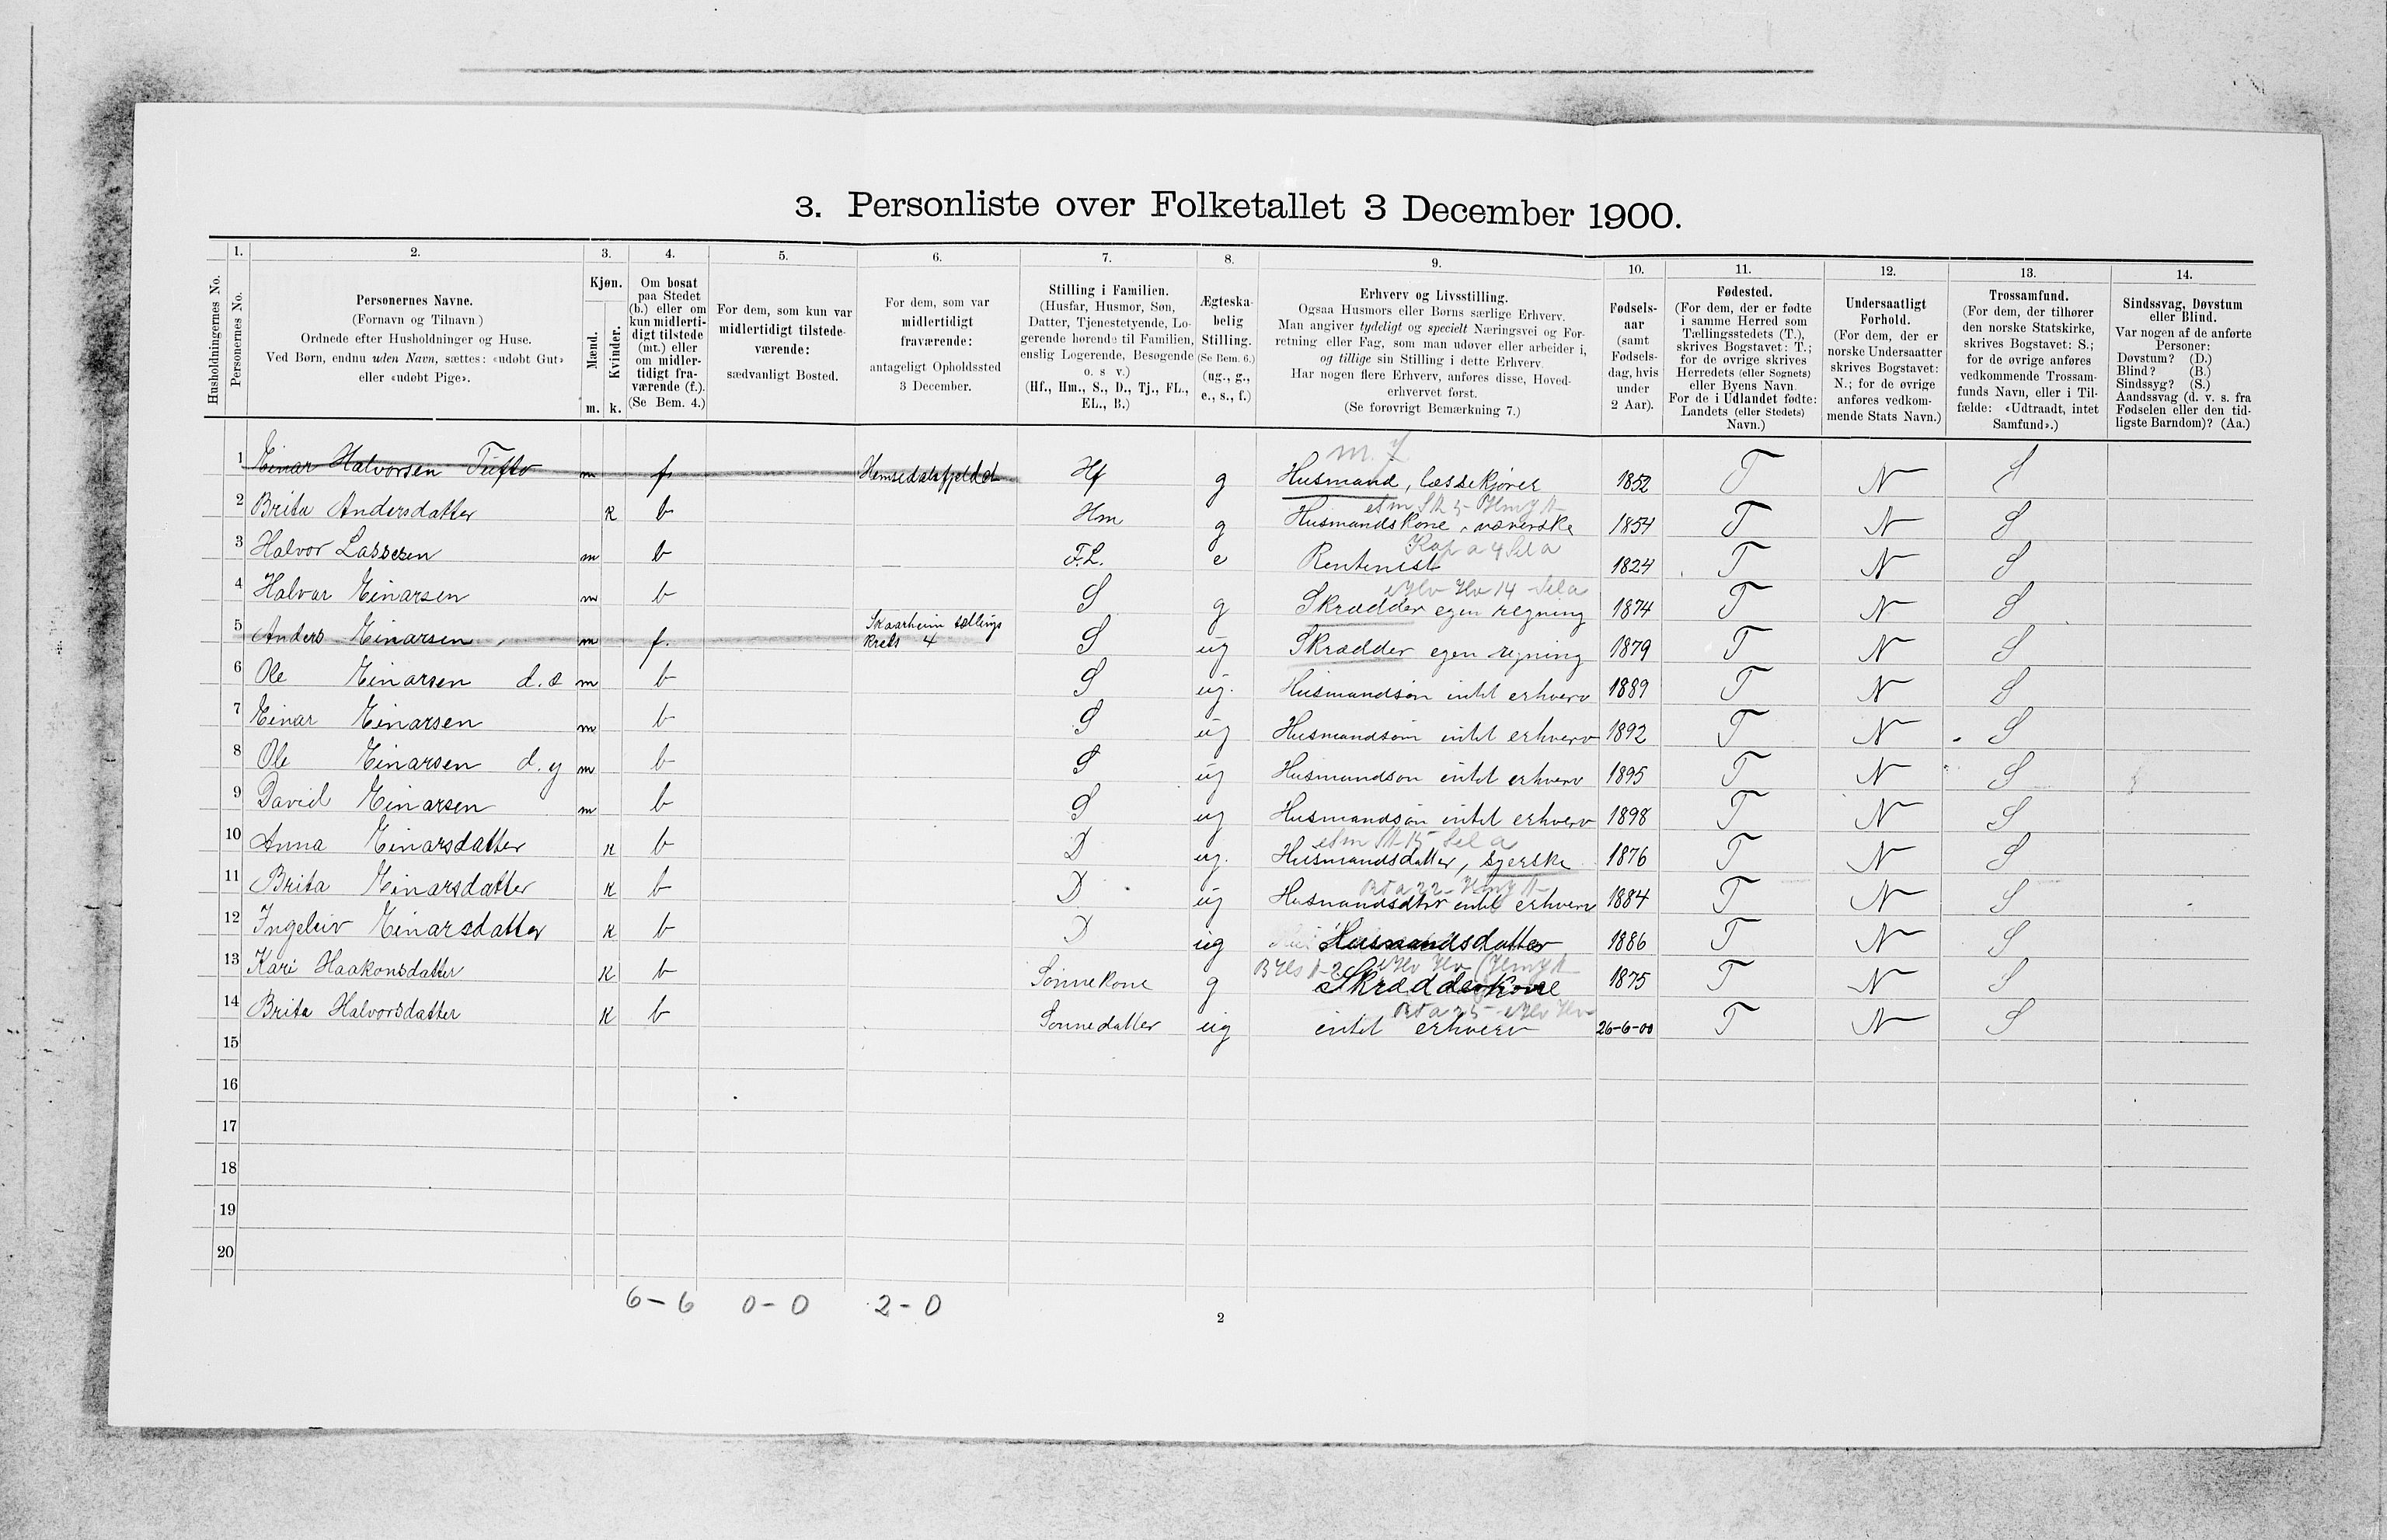 3. Personliste over Folketallet 3 December 1900.
1. 2. 3. 4. 5. 6. 7. 8. 9. 10. 11. 12. 13. 14.
Husholdningernes No.
Personernes No.
Personernes Navne.
(Fornavn og Tilnavn)
Ordnede efter Husholdninger og Huse.
Ved Børn, endnu uden Navn, sættes: «udøbt Gut»
eller «udøbt Pige».
Kjøn.
Mænd.
Kvinder.
m. k.
Om bosat
paa Stedet
(b.) eller om
kun midlerti-
digt tilstede
(mt.) eller
om midler-
tidigt fra-
værende (f.).
(Se Bem. 4.)
For dem, som kun var
midlertidigt tilstede-
værende:
sædvanligt Bosted.
For dem, som var
midlertidigt
fraværende:
antageligt Opholdssted
3 December.
Stilling i Familien.
(Husfar, Husmor, Søn,
Datter, Tjenestetyende, Lo-
gerende hørende til Familien,
enslig Logerende, Besøgende
o. s. v.)
(Hf., Hm., S., D., Tj., FL.,
EL., B.)
Ægteska-
belig
Stilling.
(Se Bem. 6.)
(ug., g.,
e., s., f.)
Erhverv og Livsstilling.
Ogsaa Husmors eller Børns særlige Erhverv.
Man angiver tydeligt og specielt Næringsvei og For-
retning eller Fag, som man udøver eller arbeider i,
og tillige sin Stilling i dette Erhverv.
Har nogen flere Erhverv, anføres disse, Hoved-
erhvervet først.
(Se forøvrigt Bemærkning 7.)
Fødsels-
aar
(samt
Fødsels-
dag, hvis
under
2 Aar).
Fødested.
(For dem, der er fødte
i samme Herred som
Tællingsstedets (T.),
skrives Bogstavet: T.;
for de øvrige skrives
Herredets (eller Sognets)
eller Byens Navn.
For de i Udlandet fødte:
Landets (eller Stedets)
Navn.)
Undersaatligt
Forhold.
(For dem, der er
norske Undersaatter
skrives Bogstavet:
N.; for de øvrige
anføres vedkom-
mende Stats Navn.)
Trossamfund.
(For dem, der tilhører
den norske Statskirke,
skrives Bogstavet: S.;
for de øvrige anføres
vedkommende Trossam-
funds Navn, eller i Til-
fælde: «Udtraadt, intet
Samfund».)
Sindssvag, Døvstum
eller Blind.
Var nogen af de anførte
Personer:
Døvstum? (D.)
Blind? (B.)
Sindssyg? (S.)
Aandssvag (d. v. s. fra
Fødselen eller den tid-
ligste Barndom)? (Aa.)
1 Einar Halvorsen Tufto m f. Hemsedalsfjeldet Hf g Husmand, læssekjører 1852 T N S
2 Brita Andersdatter k b Hm g Husmandskone, væverske 1854 T N S
3 Halvor Lassesen m b F.L. e Rentenist 1824 T N S
4 Halvor Einarsen m b S g Skrædder egen regning 1874 T N S
Skaarheim tællings
5 Anders Einarsen m f. Kreds 4 S ug Skrædder egen regning 1879 T N S
6 Ole Einarsen d. æ m b S ug. Husmandsøn intet erhverv 1889 T N S
7 Einar Einarsen m b S ug Husmandsøn intet erhverv 1892 T N S
8 Ole Einarsen d. y m b S ug Husmandsøn intet erhverv 1895 T N S
9 David Einarsen m b S ug Husmandsøn intet erhverv 1898 T N S
10 Anna Einarsdatter k b D ug. Husmandsdatter, syerske 1876 T N S
11 Brita Einarsdatter k b D ug Husmandsdtr intet erhverv 1884 T N S
12 Ingeleiv Einarsdatter k b D ug Husmandsdatter 1886 T N S
13 Kari Haakonsdatter k b Sønnekone g Skrædderkone 1875 T N S
14 Brita Halvorsdatter k b Sønnedatter ug intet erhverv 26-6-00 T N S
15
16
17
18
19
20
6-6 0-0 2-0
2